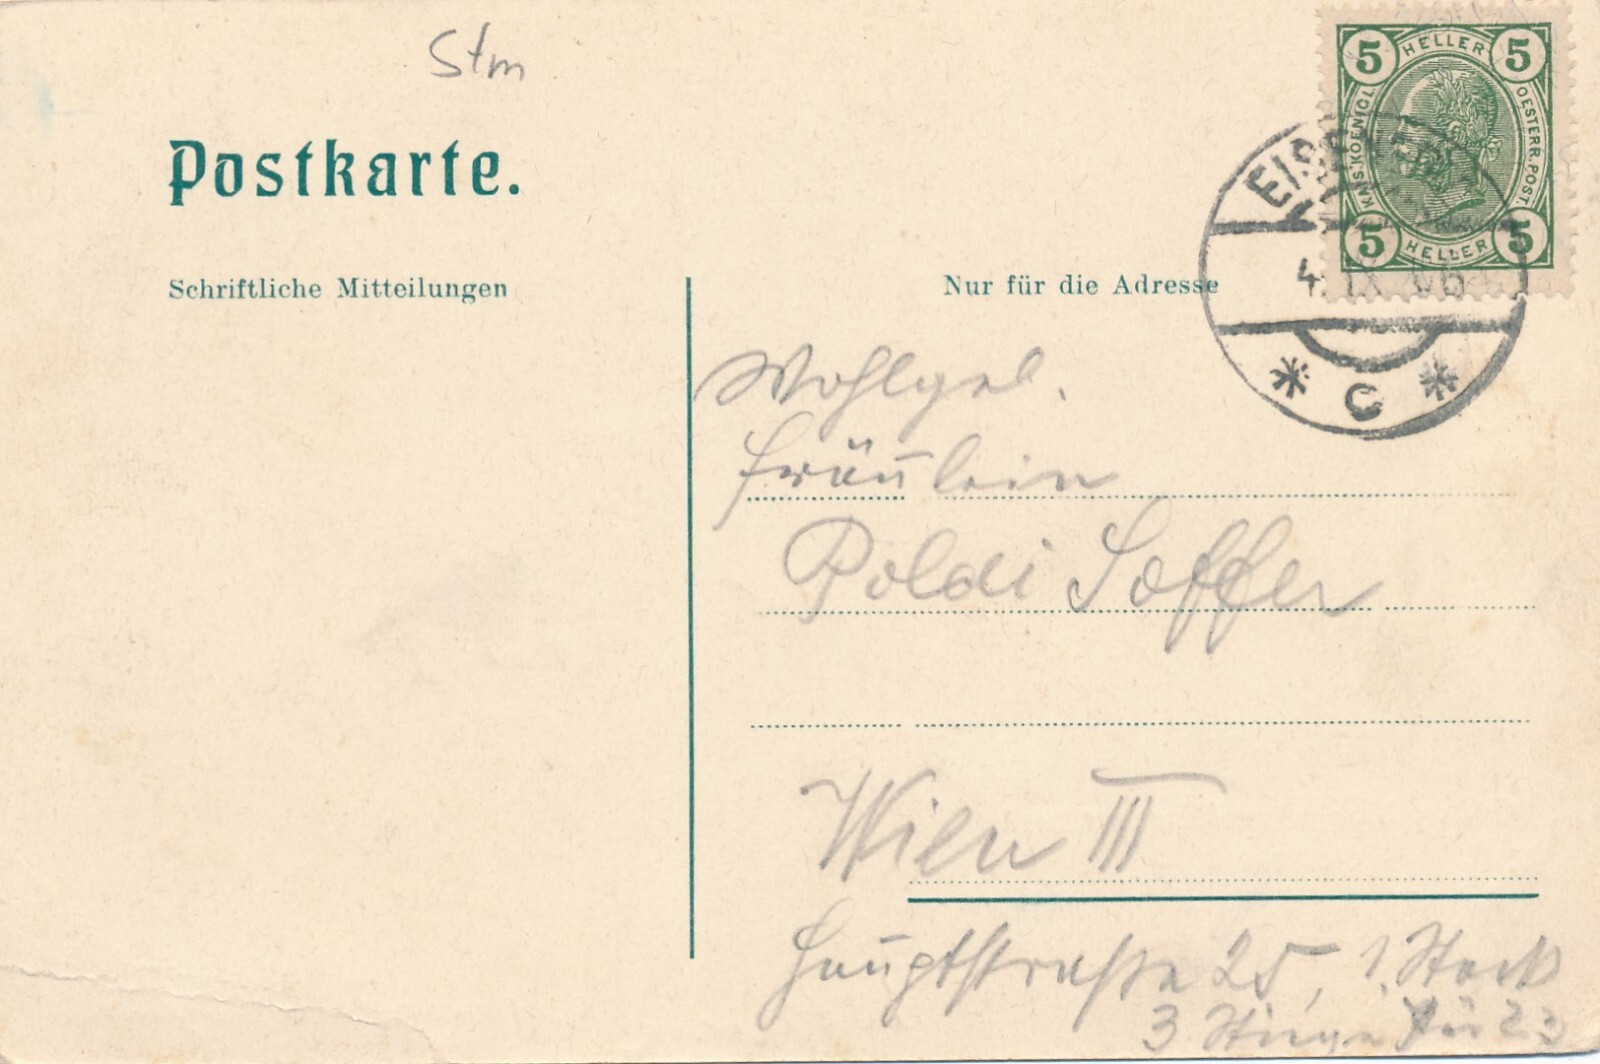 Stm
Postkarte.
Schriftliche Mitteilungen
Nur für die Adresse
5 HELLER 5
KAIS. KOENIGL. OESTERR. POST.
5 HELLER 5
EIS
4. IX. 06
* C *
Wohlgeb.
Fräulein
Poldi Soffer
Wien III
Hauptstraße 25, 1. Stock
3 Stiege Tür 23